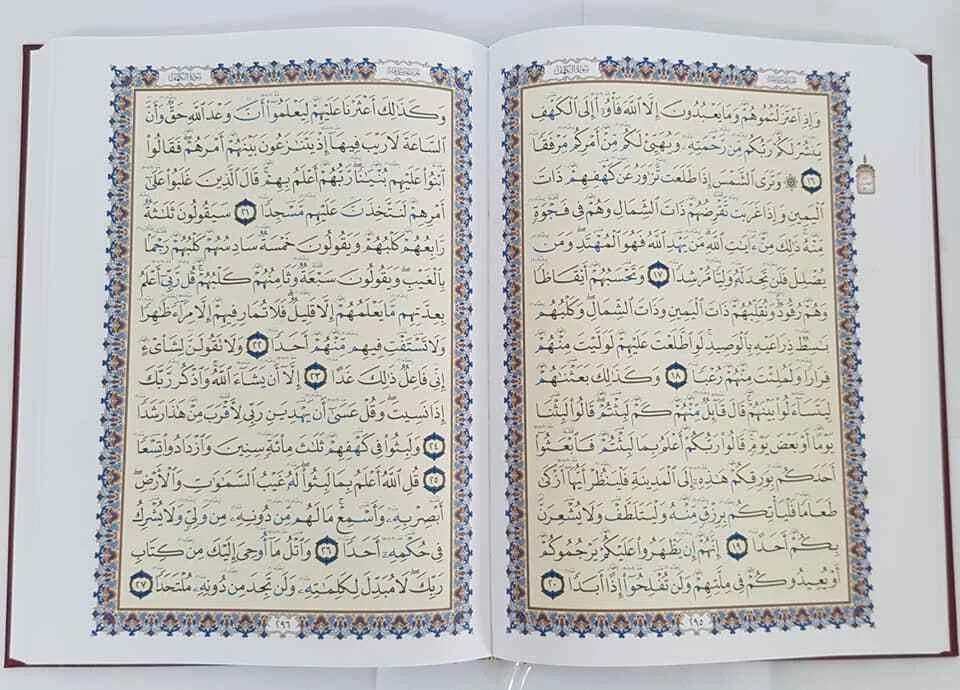 سُورَةُ الكَهْفِ
الجُزْءُ الخَامِسَ عَشَرَ
وَإِذِ ٱعْتَزَلْتُمُوهُمْ وَمَا يَعْبُدُونَ إِلَّا ٱللَّهَ فَأْوُۥٓا۟ إِلَى ٱلْكَهْفِ
يَنشُرْ لَكُمْ رَبُّكُم مِّن رَّحْمَتِهِۦ وَيُهَيِّئْ لَكُم مِّنْ أَمْرِكُم مِّرْفَقًا
١٦ ۞ وَتَرَى ٱلشَّمْسَ إِذَا طَلَعَت تَّزَٰوَرُ عَن كَهْفِهِمْ ذَاتَ
ٱلْيَمِينِ وَإِذَا غَرَبَت تَّقْرِضُهُمْ ذَاتَ ٱلشِّمَالِ وَهُمْ فِى فَجْوَةٍ
مِّنْهُ ۚ ذَٰلِكَ مِنْ ءَايَٰتِ ٱللَّهِ ۗ مَن يَهْدِ ٱللَّهُ فَهُوَ ٱلْمُهْتَدِ ۖ وَمَن
يُضْلِلْ فَلَن تَجِدَ لَهُۥ وَلِيًّا مُّرْشِدًا ١٧ وَتَحْسَبُهُمْ أَيْقَاظًا
وَهُمْ رُقُودٌ ۚ وَنُقَلِّبُهُمْ ذَاتَ ٱلْيَمِينِ وَذَاتَ ٱلشِّمَالِ ۖ وَكَلْبُهُم
بَٰسِطٌ ذِرَاعَيْهِ بِٱلْوَصِيدِ ۚ لَوِ ٱطَّلَعْتَ عَلَيْهِمْ لَوَلَّيْتَ مِنْهُمْ
فِرَارًا وَلَمُلِئْتَ مِنْهُمْ رُعْبًا ١٨ وَكَذَٰلِكَ بَعَثْنَٰهُمْ
لِيَتَسَآءَلُوا۟ بَيْنَهُمْ ۚ قَالَ قَآئِلٌ مِّنْهُمْ كَمْ لَبِثْتُمْ ۖ قَالُوا۟ لَبِثْنَا
يَوْمًا أَوْ بَعْضَ يَوْمٍ ۚ قَالُوا۟ رَبُّكُمْ أَعْلَمُ بِمَا لَبِثْتُمْ فَٱبْعَثُوٓا۟
أَحَدَكُم بِوَرِقِكُمْ هَٰذِهِۦٓ إِلَى ٱلْمَدِينَةِ فَلْيَنظُرْ أَيُّهَآ أَزْكَىٰ
طَعَامًا فَلْيَأْتِكُم بِرِزْقٍ مِّنْهُ وَلْيَتَلَطَّفْ وَلَا يُشْعِرَنَّ
بِكُمْ أَحَدًا ١٩ إِنَّهُمْ إِن يَظْهَرُوا۟ عَلَيْكُمْ يَرْجُمُوكُمْ
أَوْ يُعِيدُوكُمْ فِى مِلَّتِهِمْ وَلَن تُفْلِحُوٓا۟ إِذًا أَبَدًا ٢٠
٢٩٥
الجُزْءُ الخَامِسَ عَشَرَ
سُورَةُ الكَهْفِ
وَكَذَٰلِكَ أَعْثَرْنَا عَلَيْهِمْ لِيَعْلَمُوٓا۟ أَنَّ وَعْدَ ٱللَّهِ حَقٌّ وَأَنَّ
ٱلسَّاعَةَ لَا رَيْبَ فِيهَآ إِذْ يَتَنَٰزَعُونَ بَيْنَهُمْ أَمْرَهُمْ ۖ فَقَالُوا۟
ٱبْنُوا۟ عَلَيْهِم بُنْيَٰنًا ۖ رَّبُّهُمْ أَعْلَمُ بِهِمْ ۚ قَالَ ٱلَّذِينَ غَلَبُوا۟ عَلَىٰٓ
أَمْرِهِمْ لَنَتَّخِذَنَّ عَلَيْهِم مَّسْجِدًا ٢١ سَيَقُولُونَ ثَلَٰثَةٌ
رَّابِعُهُمْ كَلْبُهُمْ وَيَقُولُونَ خَمْسَةٌ سَادِسُهُمْ كَلْبُهُمْ رَجْمًۢا
بِٱلْغَيْبِ ۖ وَيَقُولُونَ سَبْعَةٌ وَثَامِنُهُمْ كَلْبُهُمْ ۚ قُل رَّبِّىٓ أَعْلَمُ
بِعِدَّتِهِم مَّا يَعْلَمُهُمْ إِلَّا قَلِيلٌ ۗ فَلَا تُمَارِ فِيهِمْ إِلَّا مِرَآءً ظَٰهِرًا
وَلَا تَسْتَفْتِ فِيهِم مِّنْهُمْ أَحَدًا ٢٢ وَلَا تَقُولَنَّ لِشَا۟ىْءٍ
إِنِّى فَاعِلٌ ذَٰلِكَ غَدًا ٢٣ إِلَّآ أَن يَشَآءَ ٱللَّهُ ۚ وَٱذْكُر رَّبَّكَ
إِذَا نَسِيتَ وَقُلْ عَسَىٰٓ أَن يَهْدِيَنِ رَبِّى لِأَقْرَبَ مِنْ هَٰذَا رَشَدًا
٢٤ وَلَبِثُوا۟ فِى كَهْفِهِمْ ثَلَٰثَ مِا۟ئَةٍ سِنِينَ وَٱزْدَادُوا۟ تِسْعًا
٢٥ قُلِ ٱللَّهُ أَعْلَمُ بِمَا لَبِثُوا۟ ۖ لَهُۥ غَيْبُ ٱلسَّمَٰوَٰتِ وَٱلْأَرْضِ ۖ
أَبْصِرْ بِهِۦ وَأَسْمِعْ ۚ مَا لَهُم مِّن دُونِهِۦ مِن وَلِىٍّ وَلَا يُشْرِكُ
فِى حُكْمِهِۦٓ أَحَدًا ٢٦ وَٱتْلُ مَآ أُوحِىَ إِلَيْكَ مِن كِتَابِ
رَبِّكَ ۖ لَا مُبَدِّلَ لِكَلِمَٰتِهِۦ وَلَن تَجِدَ مِن دُونِهِۦ مُلْتَحَدًا ٢٧
٢٩٦